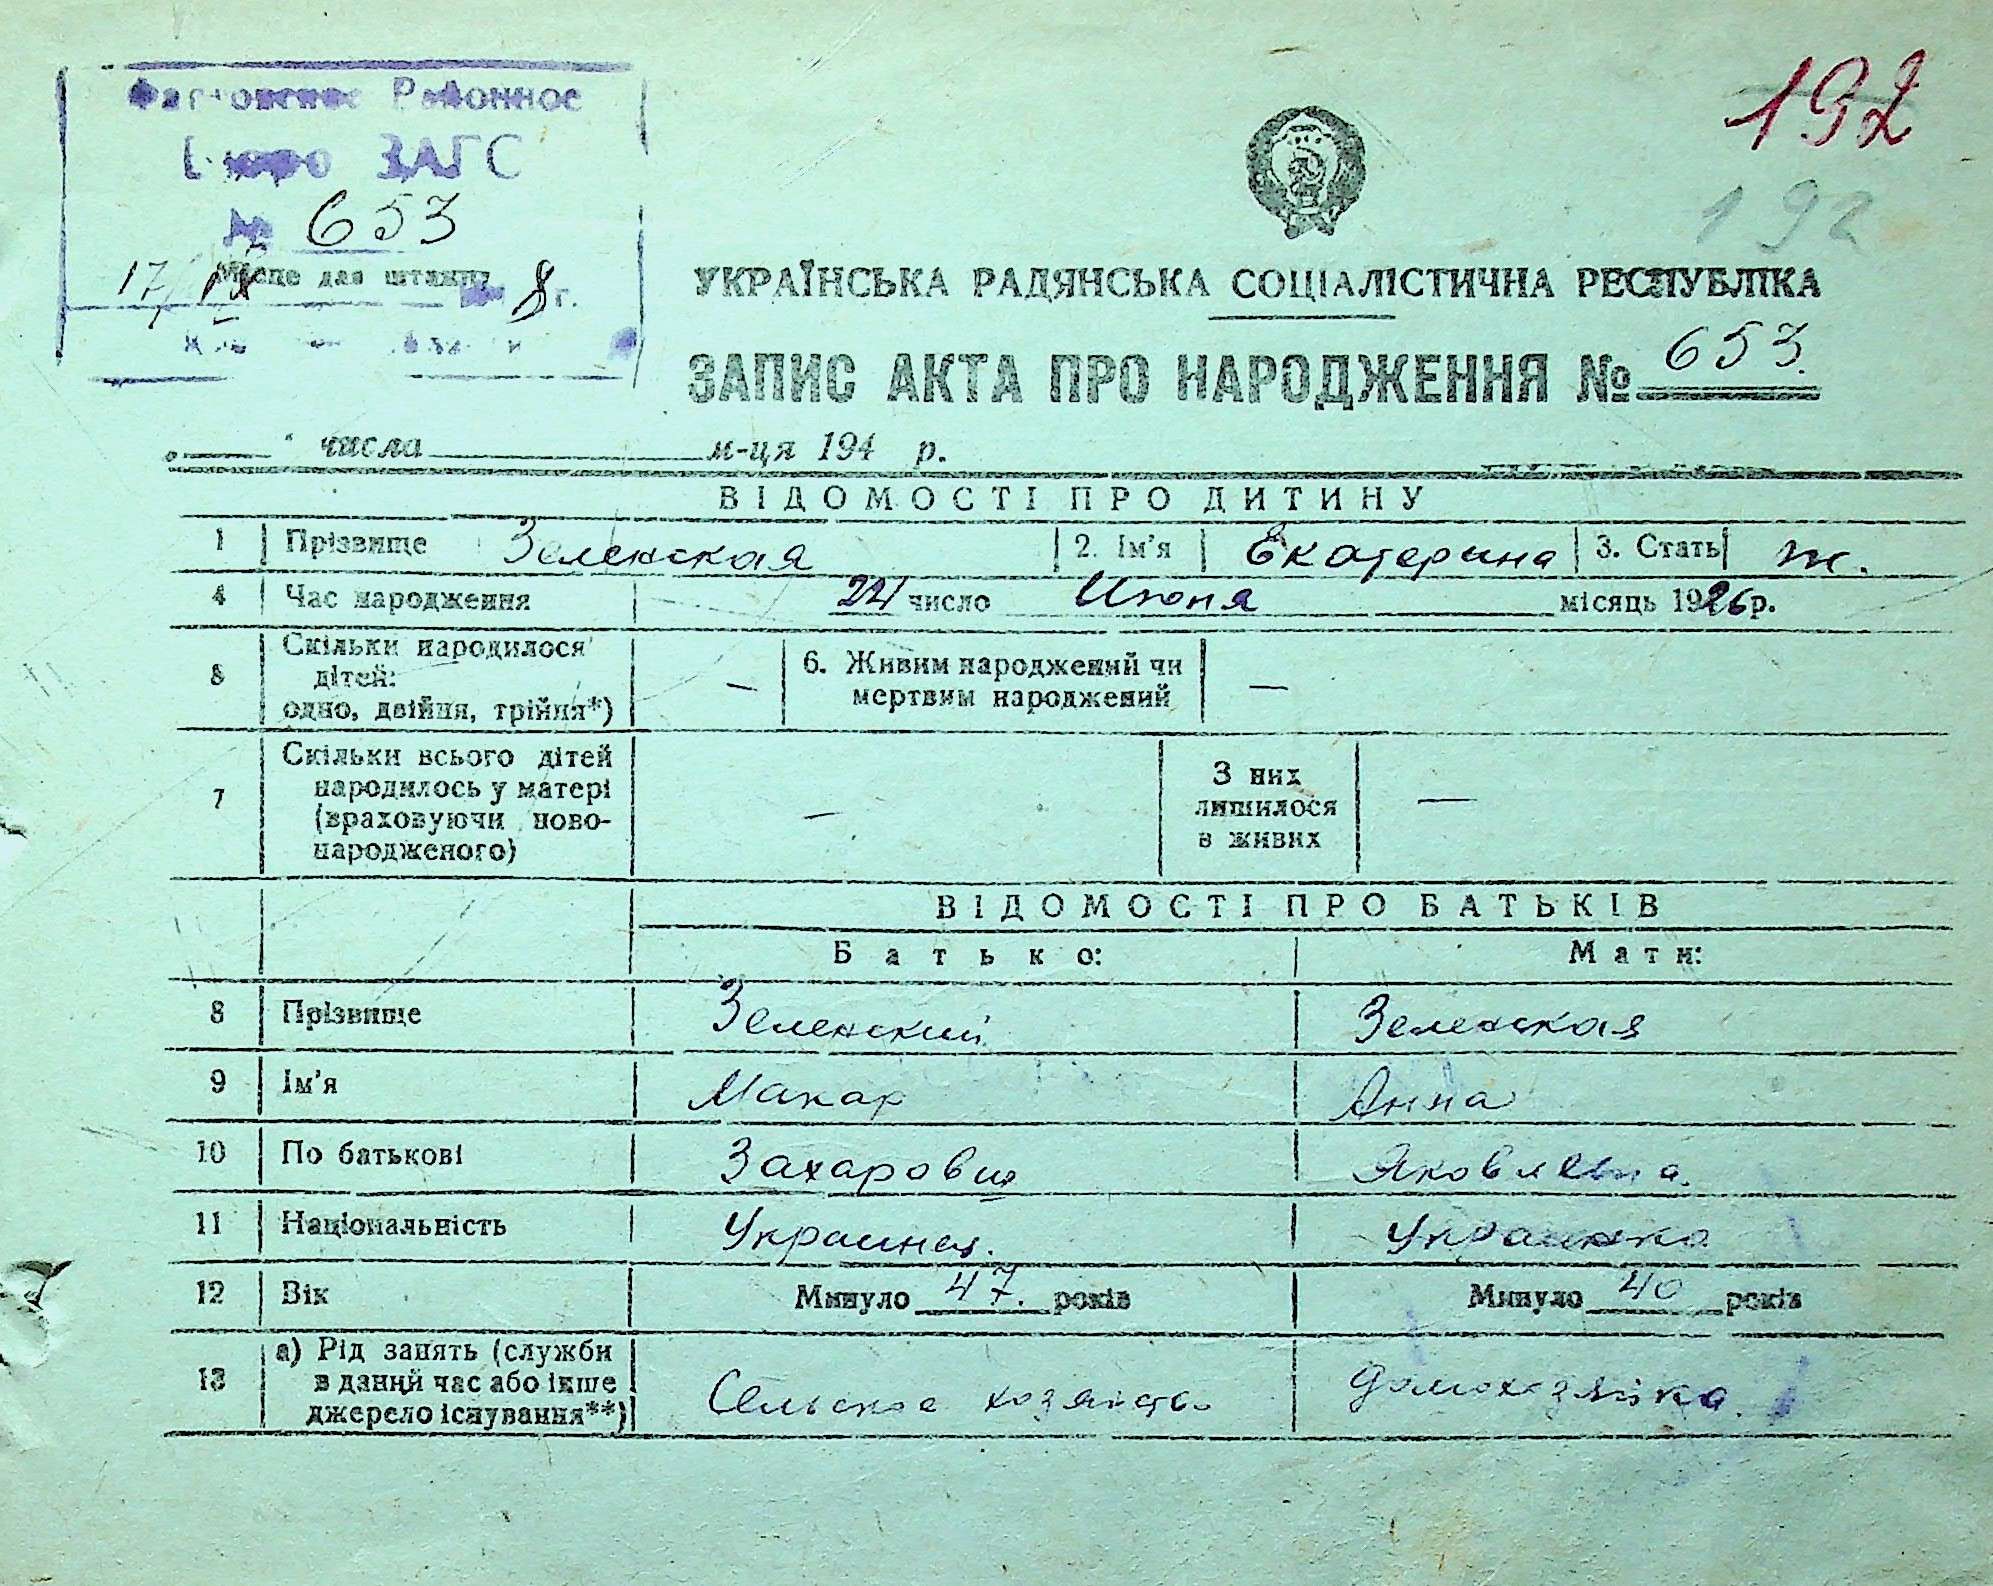 192
Районное
Бюро ЗАГС
№ 653
Місце для штампу
17/ 8 г.
192
УКРАЇНСЬКА РАДЯНСЬКА СОЦІАЛІСТИЧНА РЕСПУБЛІКА
ЗАПИС АКТА ПРО НАРОДЖЕННЯ № 653.
числа м-ця 194 р.
ВІДОМОСТІ ПРО ДИТИНУ
1 Прізвище Зеленская 2. Ім'я Екатерина 3. Стать ж.
4 Час народження 24 число Июня місяць 1926 р.
5 Скільки народилося дітей: одно, двійня, трійня*) — 6. Живим народжений чи мертвим народжений —
7 Скільки всього дітей народилось у матері (враховуючи новонародженого) — З них лишилося в живих —
ВІДОМОСТІ ПРО БАТЬКІВ
Батько: Мати:
8 Прізвище Зеленский Зеленская
9 Ім'я Макар Анна
10 По батькові Захарович Яковлевна.
11 Національність Украинец. Украинка
12 Вік Минуло 47. років Минуло 40 років
13 а) Рід занять (служби в даний час або інше джерело існування**) Сельское хозяйство Домохозяйка.